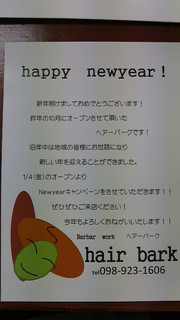 happy newyear！
新年明けましておめでとうございます！
昨年の10月にオープンさせて頂いた
ヘアーバークです！
旧年中は地域の皆様にお世話になり
新しい年を迎えることができました。
1/4(金)のオープンより
Newyearキャンペーンをさせていただきます！！
ぜひぜひご来店ください！
今年もよろしくおねがいいたします！！
Barbar work ヘアーバーク
hair bark
tel098-923-1606